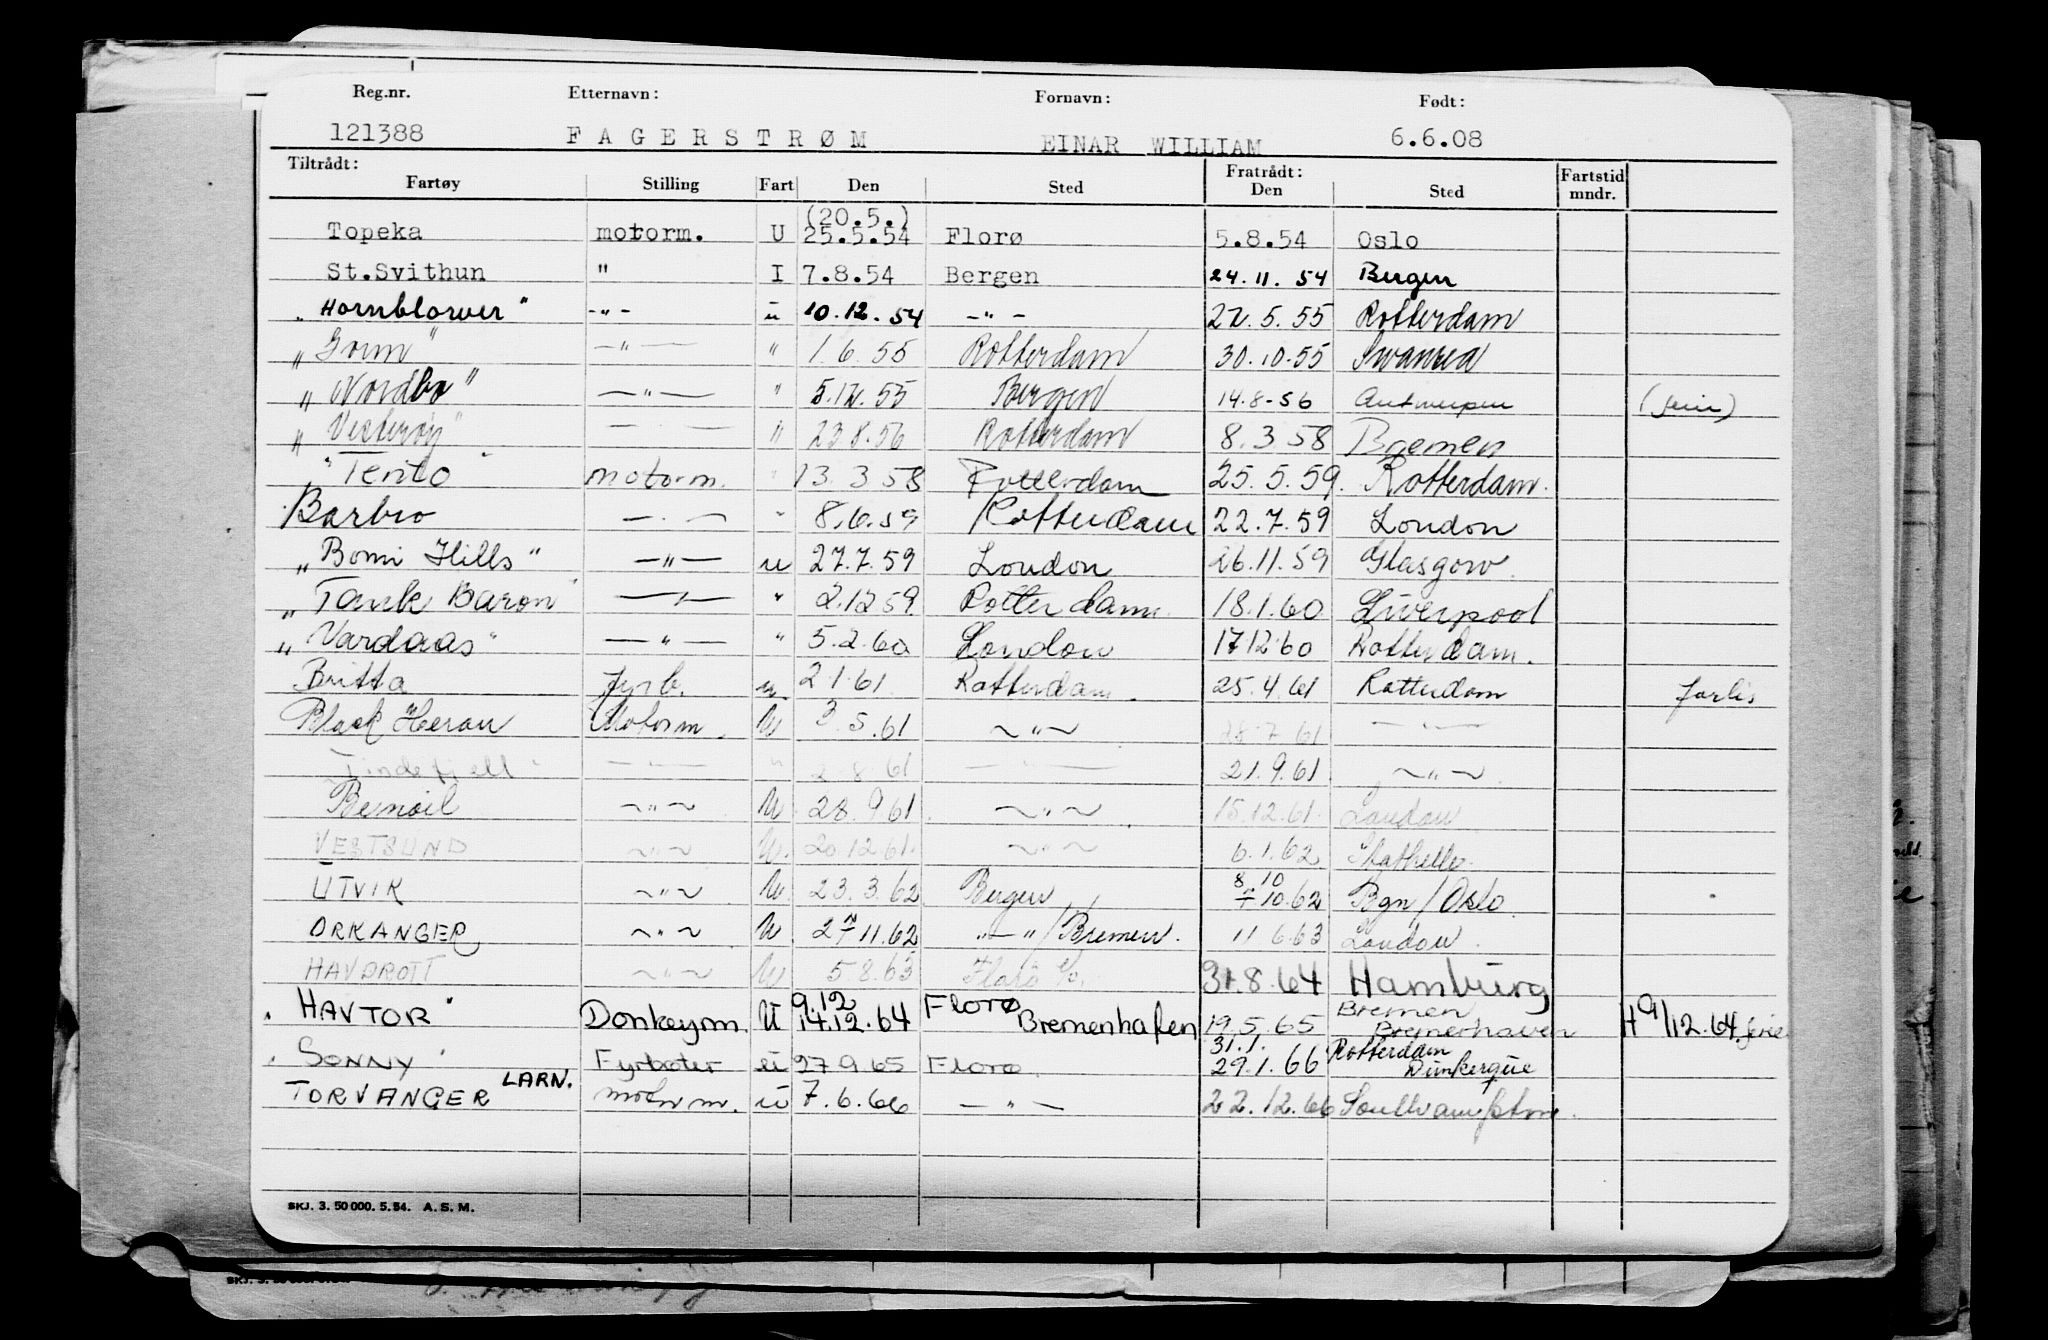 Reg.nr. Etternavn: Fornavn: Født:
121388 FAGERSTRØM EINAR WILLIAM 6.6.08
Tiltrådt: Fratrådt: Fartstid
Fartøy Stilling Fart Den Sted Den Sted mndr.
(20.5.)
Topeka motorm. U 25.5.54 Florø 5.8.54 Oslo
St.Svithun " I 7.8.54 Bergen 24.11.54 Bergen
"Hornblower" -"- u 10.12.54 -"- 22.5.55 Rotterdam
"Gorm" -"- " 1.6.55 Rotterdam 30.10.55 Swansea
"Nordbo" -"- " 5.12.55 Bergen 14.8-56 Antwerpen (ferie)
"Vesterøy" -"- " 23.8.56 Rotterdam 8.3.58 Bremen
"Terito" motorm. " 13.3.58 Rotterdam 25.5.59. Rotterdam.
Barbro -"- " 8.6.59 Rotterdam 22.7.59 London
"Bomi Hills" -"- u 27.7.59 London 26.11.59 Glasgow.
"Tank Baron" -"- " 2.12.59. Rotterdam. 18.1.60 Liverpool
"Vardaas" -"- " 5.2.60 London 17.12.60 Rotterdam.
Britta fyrb. u. 2.1.61 Rotterdam. 25.4.61 Rotterdam forlis
Black Heron Motorm. U 3.5.61 -"- 28.7.61 -"-
Tindefjell -"- " 2.8.61 -"- 21.9.61 -"-.
Bernoil -"- U 28.9.61. -"-. 15.12.61. London
VESTSUND -"- U. 20.12.61. -"- 6.1.62 Stathelle.
8/10
UTVIK -"- U 23.3.62. Bergen 10.62 Bgn/Oslo.
ORKANGER -"- U 27/11.62 "-"/Bremen. 11.6.63 London.
HAVDROTT -"- U 5.8.63 Florø 31.8.64 Hamburg
9.12 Florø Bremen
"HAVTOR" Donkeym. U 14.12.64 Bremenhafen 19.5.65 Bremerhaven H 9/12.64 ferie
31.1. Rotterdam
"SONNY" Fyrbøter u 27.9.65 Florø. 29.1.66 Dunkerque
TORVANGER LARN. motorm. u 7.6.66 -"- 22.12.66 Southampton.
SKJ. 3. 50 000. 5.54. A. S. M.